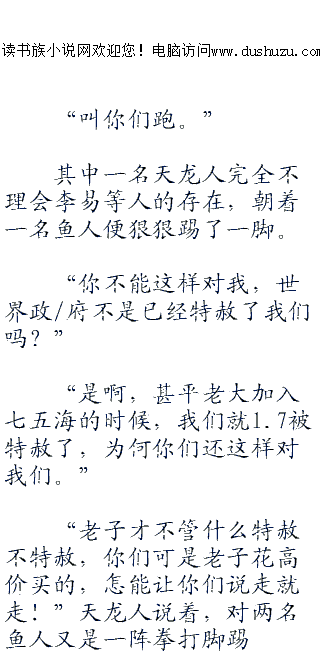 读书族小说网欢迎您！电脑访问www.dushuzu.com
“叫你们跑。”
其中一名天龙人完全不
理会李易等人的存在，朝着
一名鱼人便狠狠踢了一脚。
“你不能这样对我，世
界政/府不是已经特赦了我们
吗？”
“是啊，甚平老大加入
七五海的时候，我们就1.7被
特赦了，为何你们还这样对
我们。”
“老子才不管什么特赦
不特赦，你们可是老子花高
价买的，怎能让你们说走就
走！”天龙人说着，对两名
鱼人又是一阵拳打脚踢